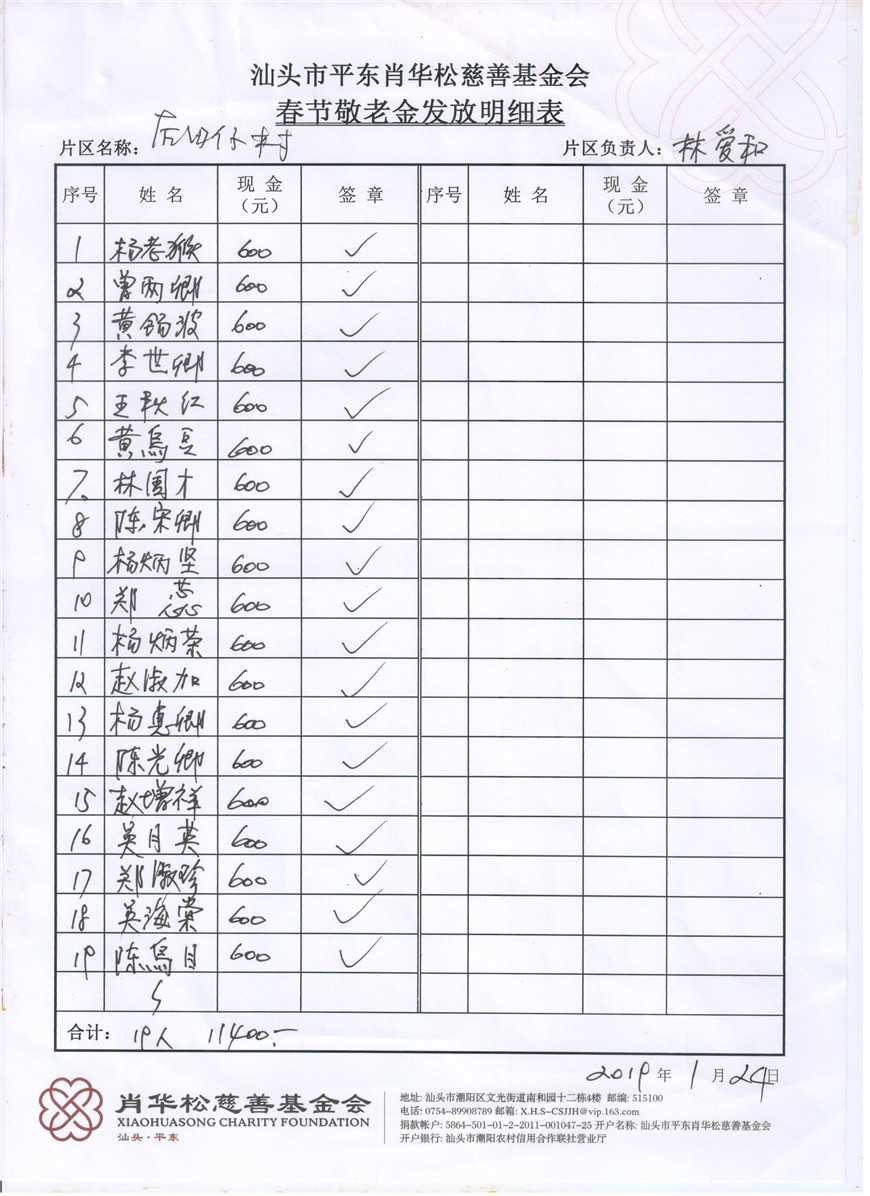 汕头市平东肖华松慈善基金会
春节敬老金发放明细表
片区名称: 片区负责人: 林爱和
序号 姓名 现金(元) 签章 序号 姓名 现金(元) 签章
1 杨老猴 600 ✓
2 曾两卿 600 ✓
3 黄锡波 600 ✓
4 李世卿 600 ✓
5 王秋红 600 ✓
6 黄烏豆 600 ✓
7. 林国才 600 ✓
8 陈宋卿 600 ✓
9 杨炳坚 600 ✓
10 郑蕊 600 ✓
11 杨炳荣 600 ✓
12 赵淑加 600 ✓
13 杨惠卿 600 ✓
14 陈光卿 600 ✓
15 赵增祥 600 ✓
16 吴月英 600 ✓
17 郑淑珍 600 ✓
18 吴海棠 600 ✓
19 陈烏目 600 ✓
合计: 19人 11400.一
2019年1月24日
肖华松慈善基金会
XIAOHUASONG CHARITY FOUNDATION
汕头·平东
地址: 汕头市潮阳区文光街道南和园十二栋4楼 邮编: 515100
电话: 0754-89908789 邮箱: X.H.S-CSJJH@vip.163.com
捐款帐户: 5864-501-01-2-2011-001047-25 开户名称: 汕头市平东肖华松慈善基金会
开户银行: 汕头市潮阳农村信用合作联社营业厅